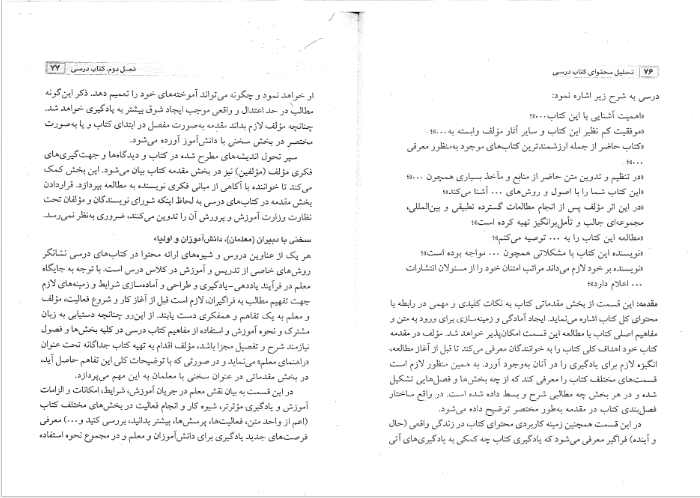 ۷۶ تحلیل محتوای کتاب درسی
درسی به شرح زیر اشاره نمود:
«اهمیت آشنایی با این کتاب...»؛
«موفقیت کم نظیر این کتاب و سایر آثار مؤلف وابسته به...»؛
«کتاب حاضر از جمله ارزشمندترین کتاب‌های موجود به‌منظور معرفی
...»؛
«در تنظیم و تدوین متن حاضر از منابع و مآخذ بسیاری همچون ...»؛
«این کتاب شما را با اصول و روش‌های ... آشنا می‌کند»؛
«در این اثر مؤلف پس از انجام مطالعات گسترده تطبیقی و بین‌المللی،
مجموعه‌ای جالب و تأمل‌برانگیز تهیه کرده است»؛
«مطالعه این کتاب را به ... توصیه می‌کنم»؛
«نویسنده این کتاب با مشکلاتی همچون ... مواجه بوده است»؛
«نویسنده بر خود لازم می‌داند مراتب امتنان خود را از مسئولان انتشارات
... اعلام دارد»؛
مقدمه: این قسمت از بخش مقدماتی کتاب به نکات کلیدی و مهمی در رابطه با
محتوای کل کتاب اشاره می‌نماید. ایجاد آمادگی و زمینه‌سازی برای ورود به متن و
مفاهیم اصلی کتاب با مطالعه این قسمت امکان‌پذیر خواهد شد. مؤلف در مقدمه
کتاب خود اهداف کلی کتاب را به خوانندگان معرفی می‌کند تا قبل از آغاز مطالعه،
انگیزه لازم برای یادگیری را در آنان به‌وجود آورد. به همین منظور لازم است
قسمت‌های مختلف کتاب را معرفی کند که از چه بخش‌ها و فصل‌هایی تشکیل
شده و در هر بخش چه مطالبی شرح و بسط داده شده است. در واقع ساختار
فصل‌بندی کتاب در مقدمه به‌طور مختصر توضیح داده می‌شود.
در این قسمت همچنین زمینه کاربردی محتوای کتاب در زندگی واقعی (حال
و آینده) فراگیر معرفی می‌شود که یادگیری کتاب چه کمکی به یادگیری‌های آتی
فصل دوم. کتاب درسی ۷۷
او خواهد نمود و چگونه می‌تواند آموخته‌های خود را تعمیم دهد. ذکر این‌گونه
مطالب در حد اعتدال و واقعی موجب ایجاد شوق بیشتر به یادگیری خواهد شد.
چنانچه مؤلف لازم بداند مقدمه به‌صورت مفصل در ابتدای کتاب و یا به‌صورت
مختصر در بخش سخنی با دانش‌آموز آورده می‌شود.
سیر تحول اندیشه‌های مطرح شده در کتاب و دیدگاه‌ها و جهت‌گیری‌های
فکری مؤلف (مؤلفین) نیز در بخش مقدمه کتاب بیان می‌شود. این بخش کمک
می‌کند تا خواننده با آگاهی از مبانی فکری نویسنده به مطالعه بپردازد. قراردادن
بخش مقدمه در کتاب‌های درسی به لحاظ اینکه شورای نویسندگان و مؤلفان تحت
نظارت وزارت آموزش و پرورش آن را تدوین می‌کنند، ضروری به‌نظر نمی‌رسد.
سخنی با دبیران (معلمان)، دانش‌آموزان و اولیاء
هر یک از عناوین دروس و شیوه‌های ارائه محتوا در کتاب‌های درسی نشانگر
روش‌های خاصی از تدریس و آموزش در کلاس درس است. با توجه به جایگاه
معلم در فرآیند یاددهی-یادگیری و طراحی و آماده‌سازی شرایط و زمینه‌های لازم
جهت تفهیم مطالب به فراگیران، لازم است قبل از آغاز کار و شروع فعالیت، مؤلف
و معلم به یک تفاهم و همفکری دست یابند. از این‌رو چنانچه دستیابی به زبان
مشترک و نحوه آموزش و استفاده از مفاهیم کتاب درسی در کلیه بخش‌ها و فصول
نیازمند شرح و تفصیل مجزا باشد، مؤلف اقدام به تهیه کتاب جداگانه تحت عنوان
«راهنمای معلم» می‌نماید و در صورتی که با توضیحات کلی این تفاهم حاصل آید،
در بخش مقدماتی در عنوان سخنی با معلمان به این مهم می‌پردازد.
در این قسمت به بیان نقش معلم در جریان آموزش، شرایط، امکانات و الزامات
آموزش و یادگیری مؤثرتر، شیوه کار و انجام فعالیت در بخش‌های مختلف کتاب
(اعم از واحد متن، فعالیت‌ها، پرسش‌ها، بیشتر بدانید، بررسی کنید و...) معرفی
فرصت‌های جدید یادگیری برای دانش‌آموزان و معلم و در مجموع نحوه استفاده